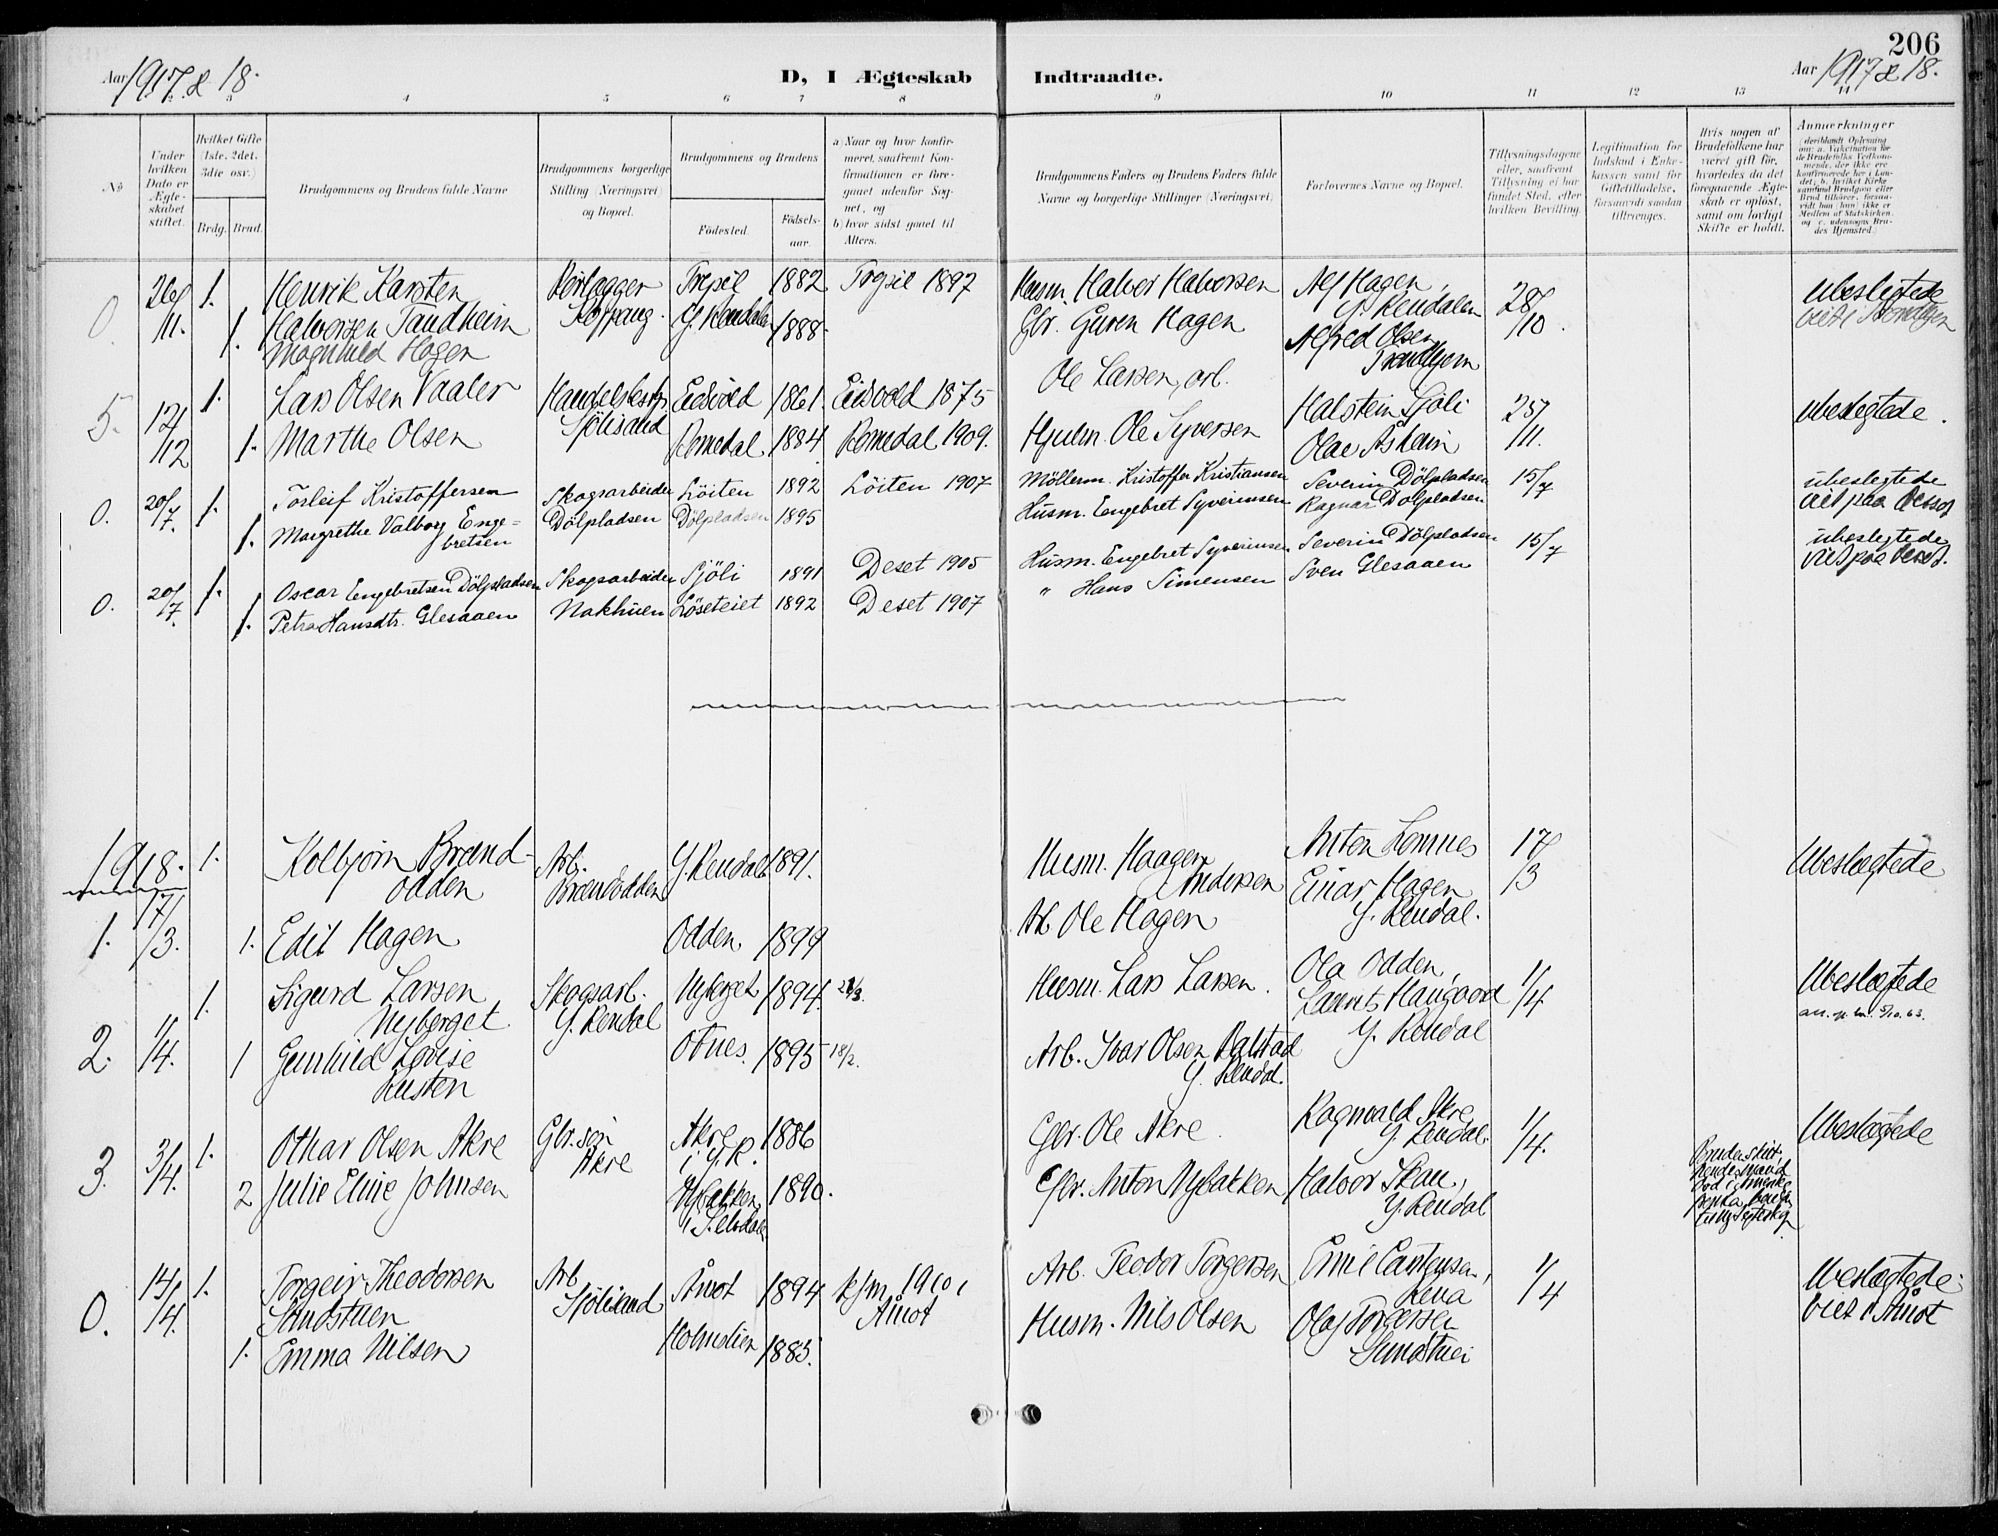 206
Aar 1917 & 18.
D, I Ægteskab Indtraadte.
Aar 1917 & 18.
2 3 4 5 6 7 8 9 10 11 12 13 14
No
Under hvilken Dato er Ægteskabet stiftet.
Hvilket Gifte (1ste, 2det, 3die osv.)
Brdg. Brud.
Brudgommens og Brudens fulde Navne
Brudgommens borgerlige Stilling (Næringsvei) og Bopæl.
Brudgommens og Brudens
Fødested.
Fødsels-aar.
a) Naar og hvor konfirmeret, saafremt Konfirmationen er foregaaet udenfor Sognet, og
b) hvor sidst gaaet til Alters.
Brudgommens Faders og Brudens Faders fulde Navne og borgerlige Stillinger (Næringsvei)
Forlovernes Navne og Bopæl.
Tillysningsdagene eller, saafremt Tillysning ei har fundet Sted, efter hvilken Bevilling.
Legitimation for Indskud i Enkekassen samt for Giftetilladelse, forsaavidt saadan tiltrænges.
Hvis nogen af Brudefolkene har været gift før, hvorledes da det foregaaende Ægteskab er opløst, samt om lovligt Skifte er holdt.
Anmerkninger
0. 26/11. 1. Henrik Karsten Trysil 1882 Trysil 1897 Husm. Halvor Halvorsen Alf Hagen, 28/10. ubeslegtede
1. Halvorsen Sandheim Koppang. Y. Rendalen 1888. Gbr. Guren Hagen Y. Rendalen
Magnhild Hagen Alfred Olsen
Trondhjem
5. 12/12 1. Lars Olsen Vaaler Eidsvold 1861. Eidsvold 1875 Ole Larsen, arb. Halstein Sjöli 25/11. ubeslegtede.
1. Marthe Olsen Sjölisand Romedal 1884 Romedal 1909. Hjulm. Ole Syversen
0. 20/7. 1. Torleif Kristoffersen Skogsarbeider Löiten 1892 Löiten 1907 Möllerm. Kristoffer Kristiansen Severin Dölpladsen 15/7 ubeslegtede
1. Margrethe Valborg Enge= Dölpladsen Dölpladsen 1895 Husm. Engebret Syverinsen Ragnar Dolpladsen viet paa Desset
bretsen
0. 20/7. 1. Oscar Engebretsen Dölpladsen Skogsarbeider Sjöli 1891 Deset 1905 Husm. Engebret Syverinsen Severin Dölpladsen 15/7 ubeslegtede
1. Petra Hansdtr. Glesaaen Nakhuen Löseteiet 1892 Deset 1907 " Hans Simensen Sven Glesaaen viet paa Deset.
1918. 1. Kolbjørn Brænd- Arb. Y. Rendal 1891. Husm. Haagen Anton Lomnes 17/3 Ubeslægtede
odden Brændodden Andersen Einar Hagen
1. 17/3. 1. Edit Hagen Odden, 1899 Arb Ole Hagen Y. Rendal.
1. Sigurd Larsen Skogsarb. Nyberget 1894. Husm. Lars Larsen. Ola Odden, 1/4 Ubeslægtede
Nyberget Y. Rendal Laurits Haugaard
2. 1/4. 1 Gunhild Lovise Otnes. 1895 18/2. Arb. Ivar Olsen Y. Rendal
Rusten Y. Rendal.
3. 3/4. 1. Othar Olsen Akre Gbr. søn Akre 1886 Gbr. Ole Akre. Ragnvald Akre 1/4. Ubeslægtede
Akre i Y. R. Y. Rendal.
2 Julie Eline Johnsen Nybakken 1890. Gbr. Anton Nybakken Halvor Skau,
Y. Rendal
0. 14/4. 1. Torgeir Theodorsen Arb Åmot 1894 kfm 1910 i Arb. Teodor Torgersen Emil Carstensen, 1/4 Ubeslægtede.
Sandstuen Sjölisand Åmot Rena viet i Åmot
1. Emma Nilsen Holmslien 1885. Husm. Nils Olsen Olaf Torgersen